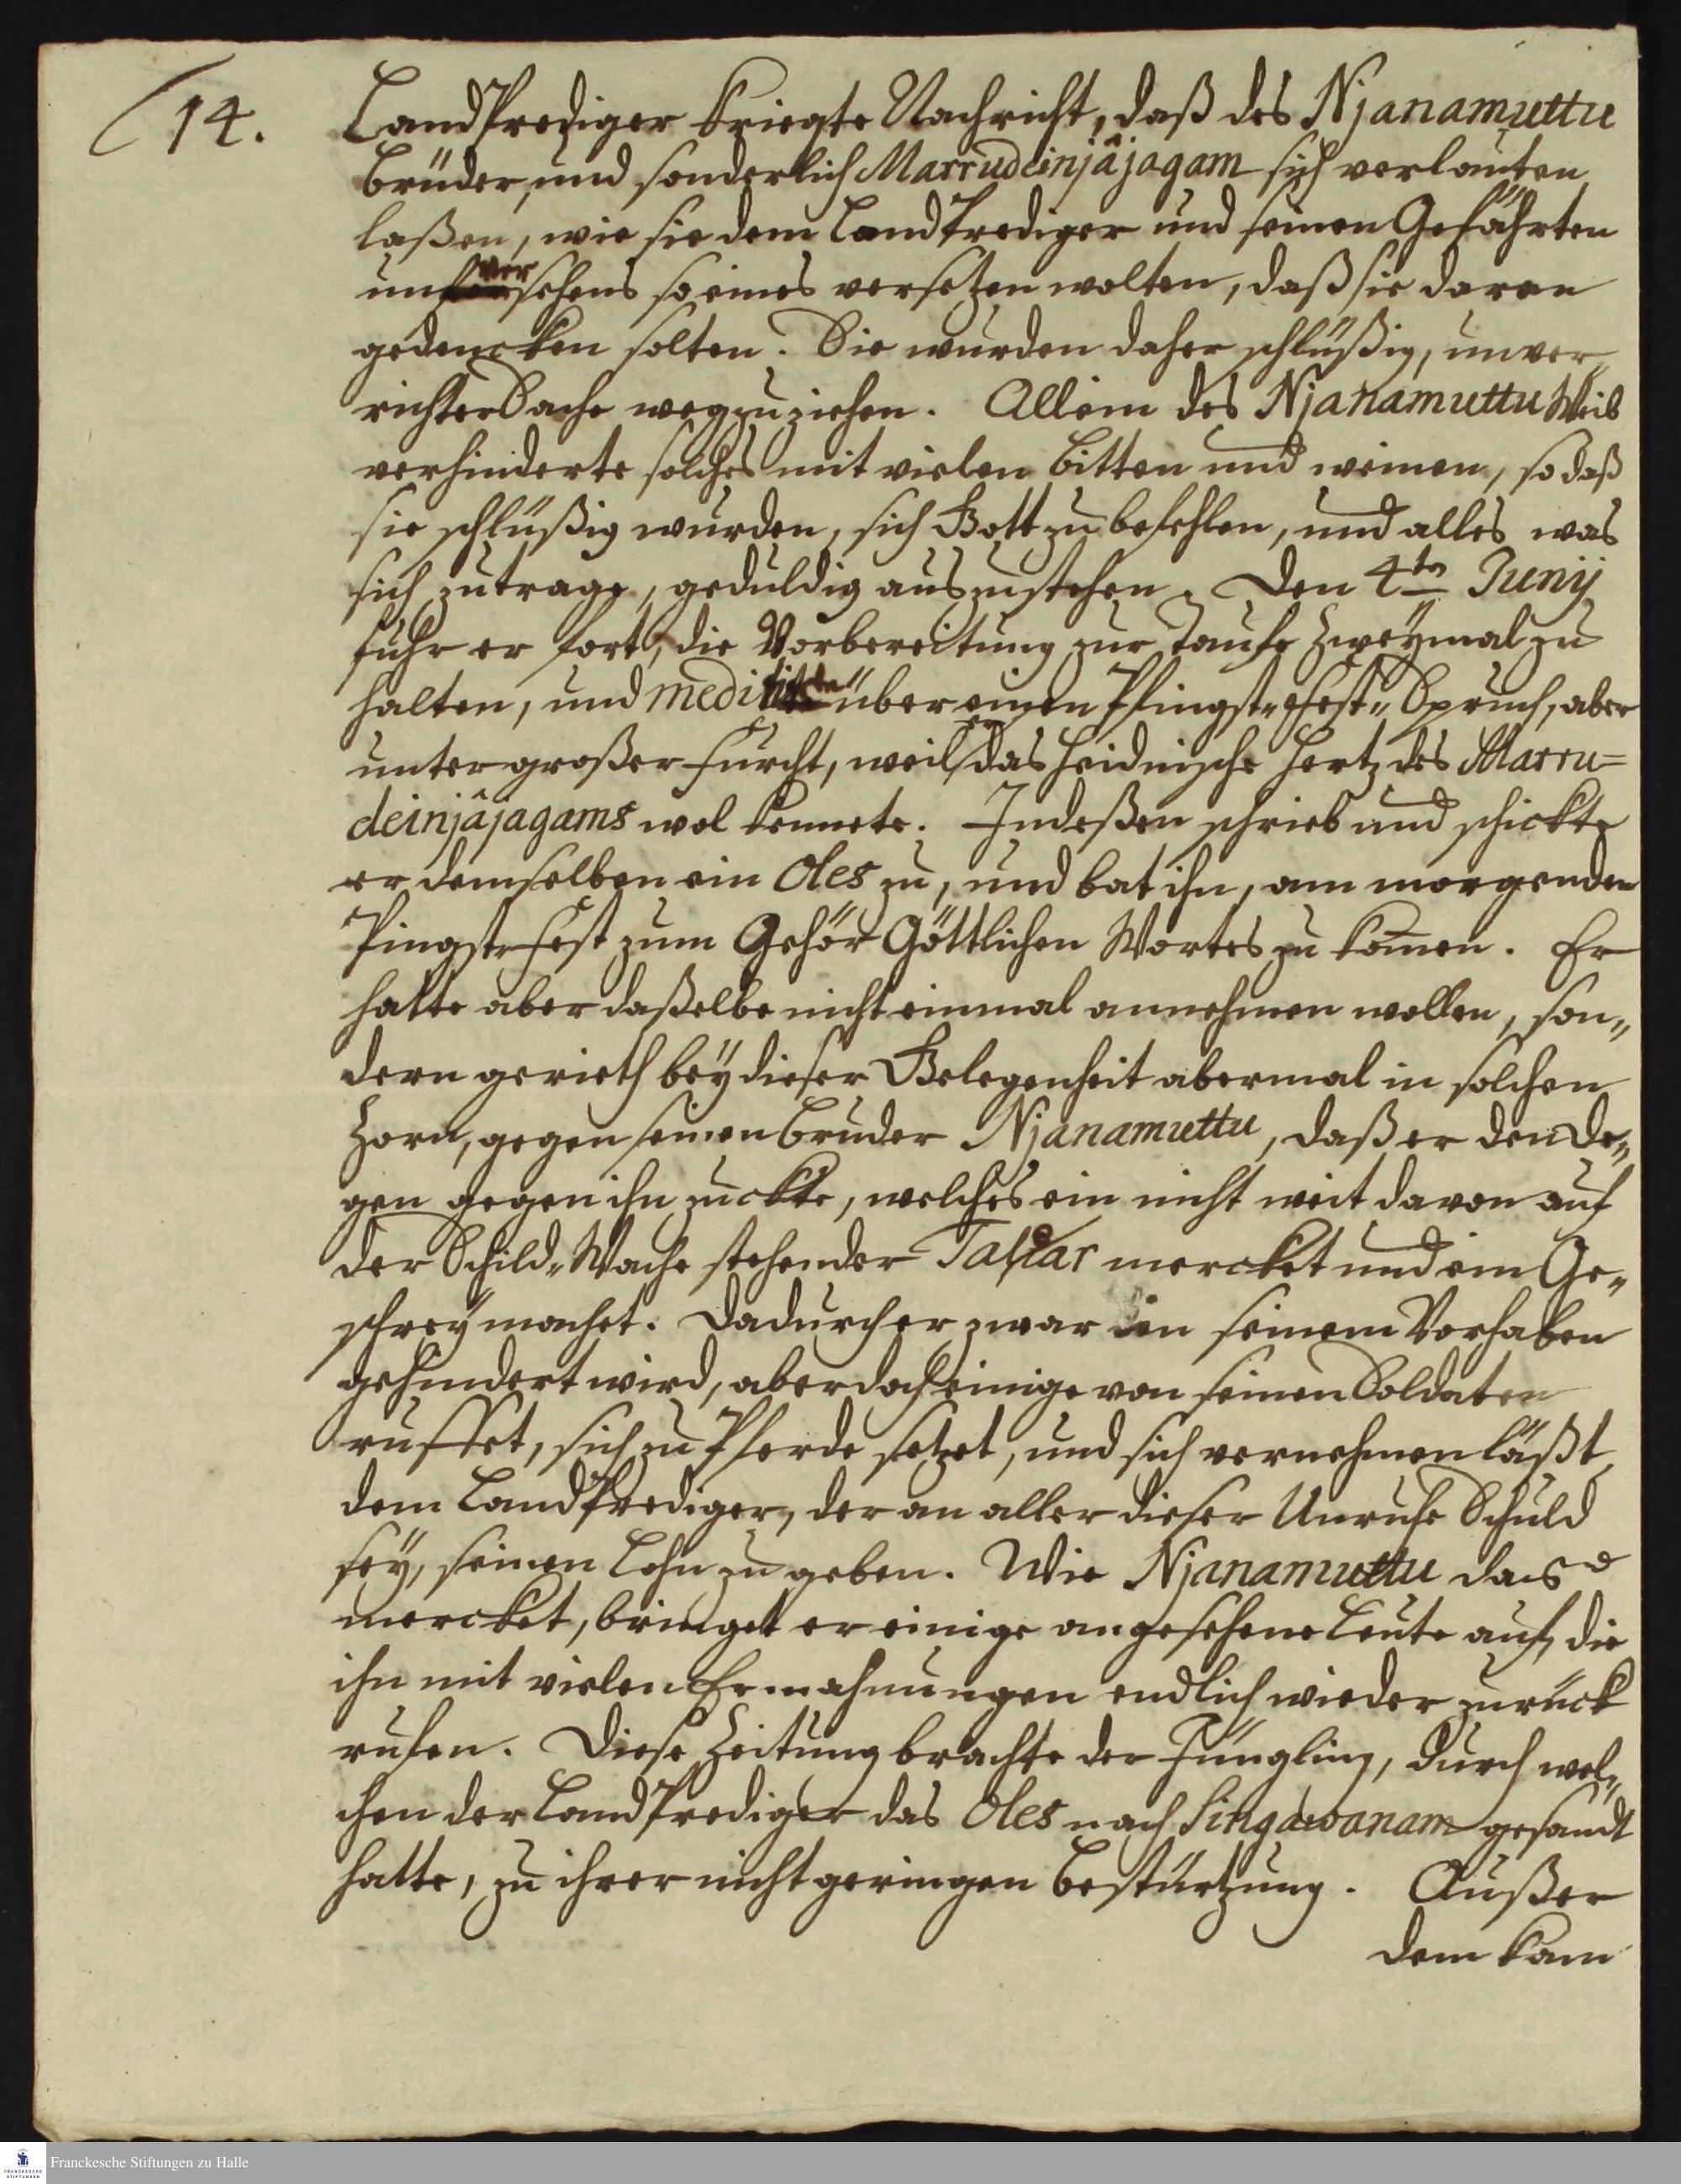 (14.
LandPrediger kriegte Nachricht, daß des Njanamuttu
Brüder, und sonderlich Marrudeinjâjagam sich verlauten
laßen, wie sie dem LandPrediger und seinen Gefährten
unversehens so eines versetzen wolten, daß sie daran
gedencken solten. Sie wurden daher schlüßig, unver„
richter Sache wegzuziehen. Allein des Njanamuttu Weib
verhinderte solches mit vielen bitten und weinen, so daß
sie schlüßig wurden, sich Gott zu befehlen, und alles was
sich zutrage, geduldig auszustehen. Den 4ten Junij
fuhr er fort, die Vorbereitung zur Taufe zweÿmal zu
halten, und meditirte über einen Pfingst„Fest„Spruch, aber
unter großer Furcht, weil er das heidnische Hertz des Marru=
deinjâjagams wol kennete. Indeßen schrieb und schickte
er demselben ein Oles zu, und bat ihn, am morgenden
Pingst„Fest zum Gehör Göttlichen Wortes zu kom̄en. Er
hatte aber daßelbe nicht einmal annehmen wollen, son„
dern gerieth beÿ dieser Gelegenheit abermal in solchen
Zorn, gegen seinen Bruder Njanamuttu, daß er den De„
gen gegen ihn zuckte, welches ein nicht weit davon auf
der Schild„Wache stehender Taliar mercket und ein Ge„
schreÿ machet. Dadurch er zwar in seinem Vorhaben
gehindert wird, aber doch einige von seinen Soldaten
ruffet, sich zu Pferde setzet, und sich vernehmen läßt,
dem LandPrediger, der an aller dieser Unruhe Schuld
seÿ, seinen Lohn zu geben. Wie Njanamuttu das
mercket, bringet er einige angesehene Leute auf, die
ihn mit vielen Ermahnungen endlich wieder zurück
rufen. Diese Zeitung brachte der Jüngling, durch wel„
chen der LandPrediger das Oles nach Singawanam gesandt
hatte, zu ihrer nicht geringen Bestürtzung. Außer
dem kam
Franckesche Stiftungen zu Halle